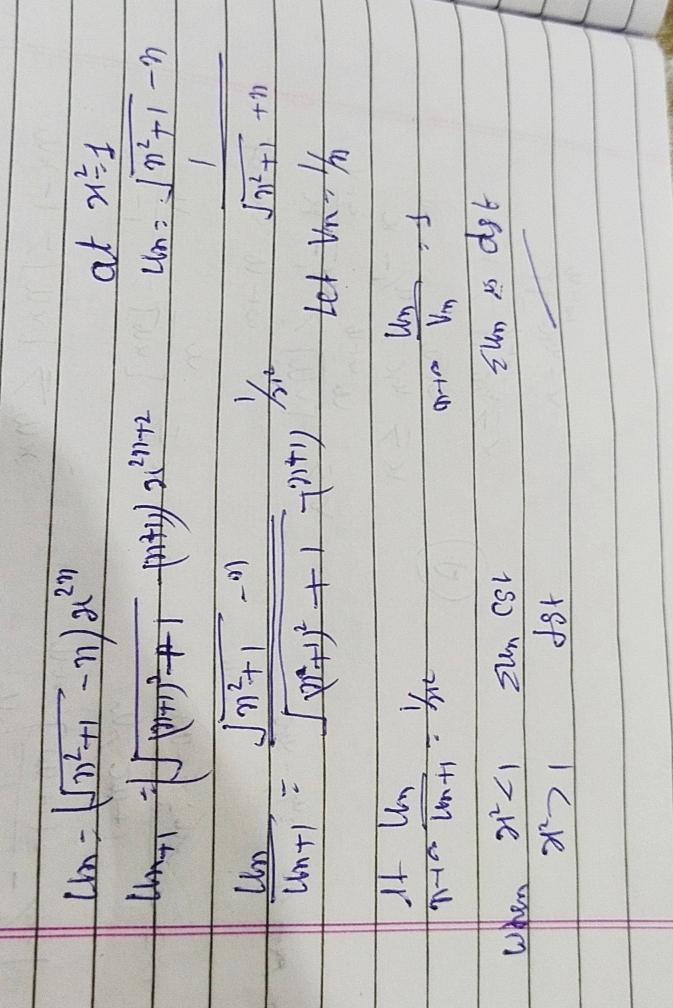 Un = (√n²+1 - n) x²ⁿ
Un+1 = √(n+1)²+1 - (n+1)) x²ⁿ⁺²
Un / Un+1 = √n²+1 - n / √(n+1)²+1 - (n+1) 1/x²
lt n→∞ Un / Un+1 = 1/x²
When x² < 1 Σun cgt
x² > 1 dgt
at x² = 1
Un = √n²+1 - n
1 / √n²+1 + n
Let Vn = 1/n
n→∞ Un / Vn = 1
ΣUn is dgt